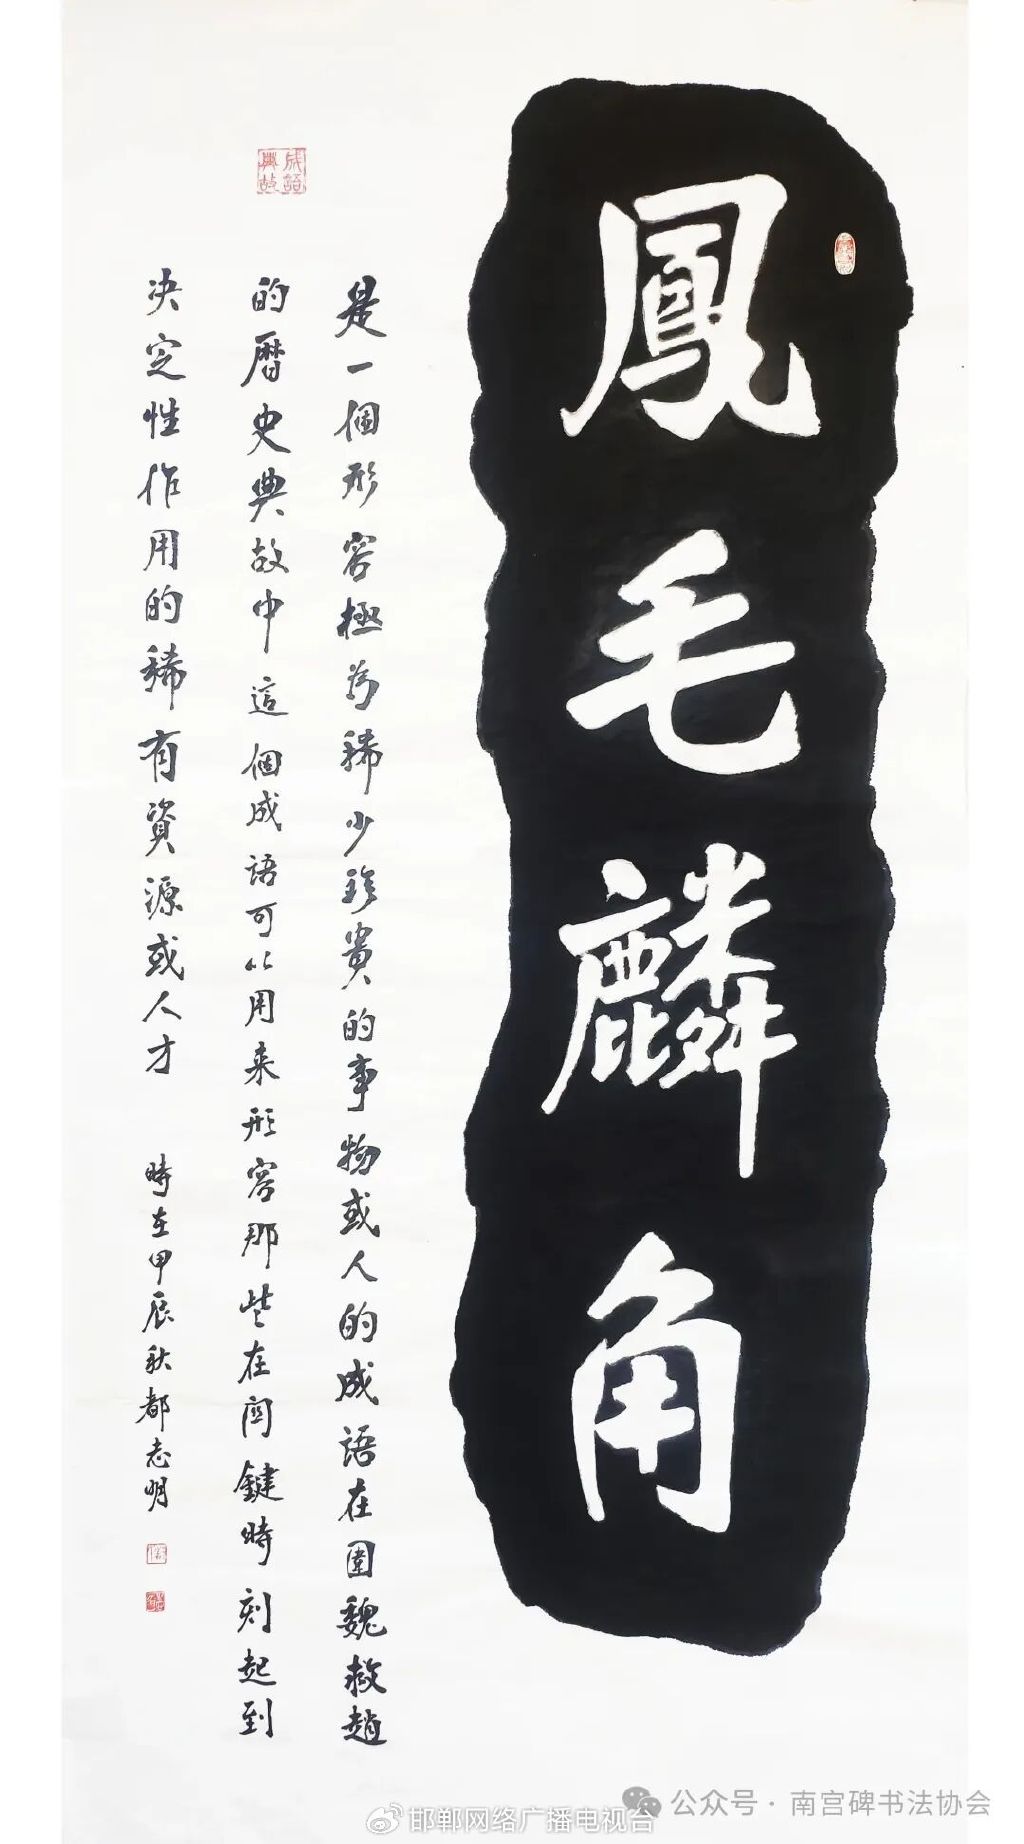 鳳毛麟角
是一個形容極为稀少珍貴的事物或人的成語在圍魏救趙
的曆史典故中這個成语可以用来形容那些在関鍵時刻起到
决定性作用的稀有資源或人才 時在甲辰秋都志明
成語典故
公众号 · 南宫碑书法协会
邯郸网络广播电视台